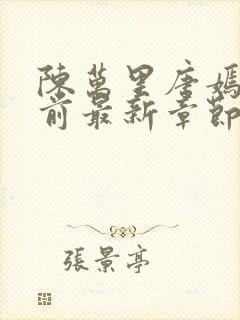 陳萬里唐嫣
前最新章節
張景亭